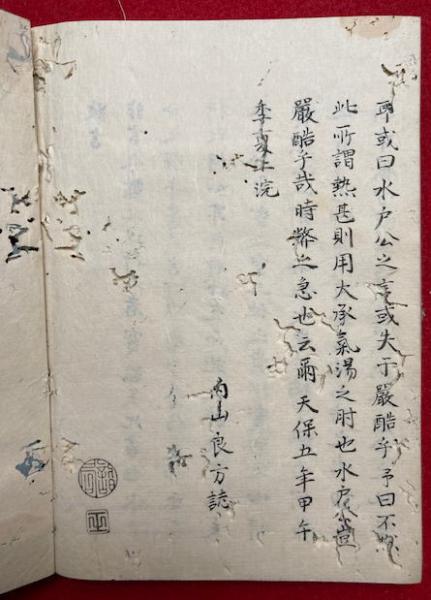 耶或曰水戸公之言或失于嚴酷乎予曰不然
此所謂熱甚則用大承氣湯之時也水戸公豈
嚴酷乎哉時弊之急也云爾天保五年甲午
季夏上浣
内山良方誌